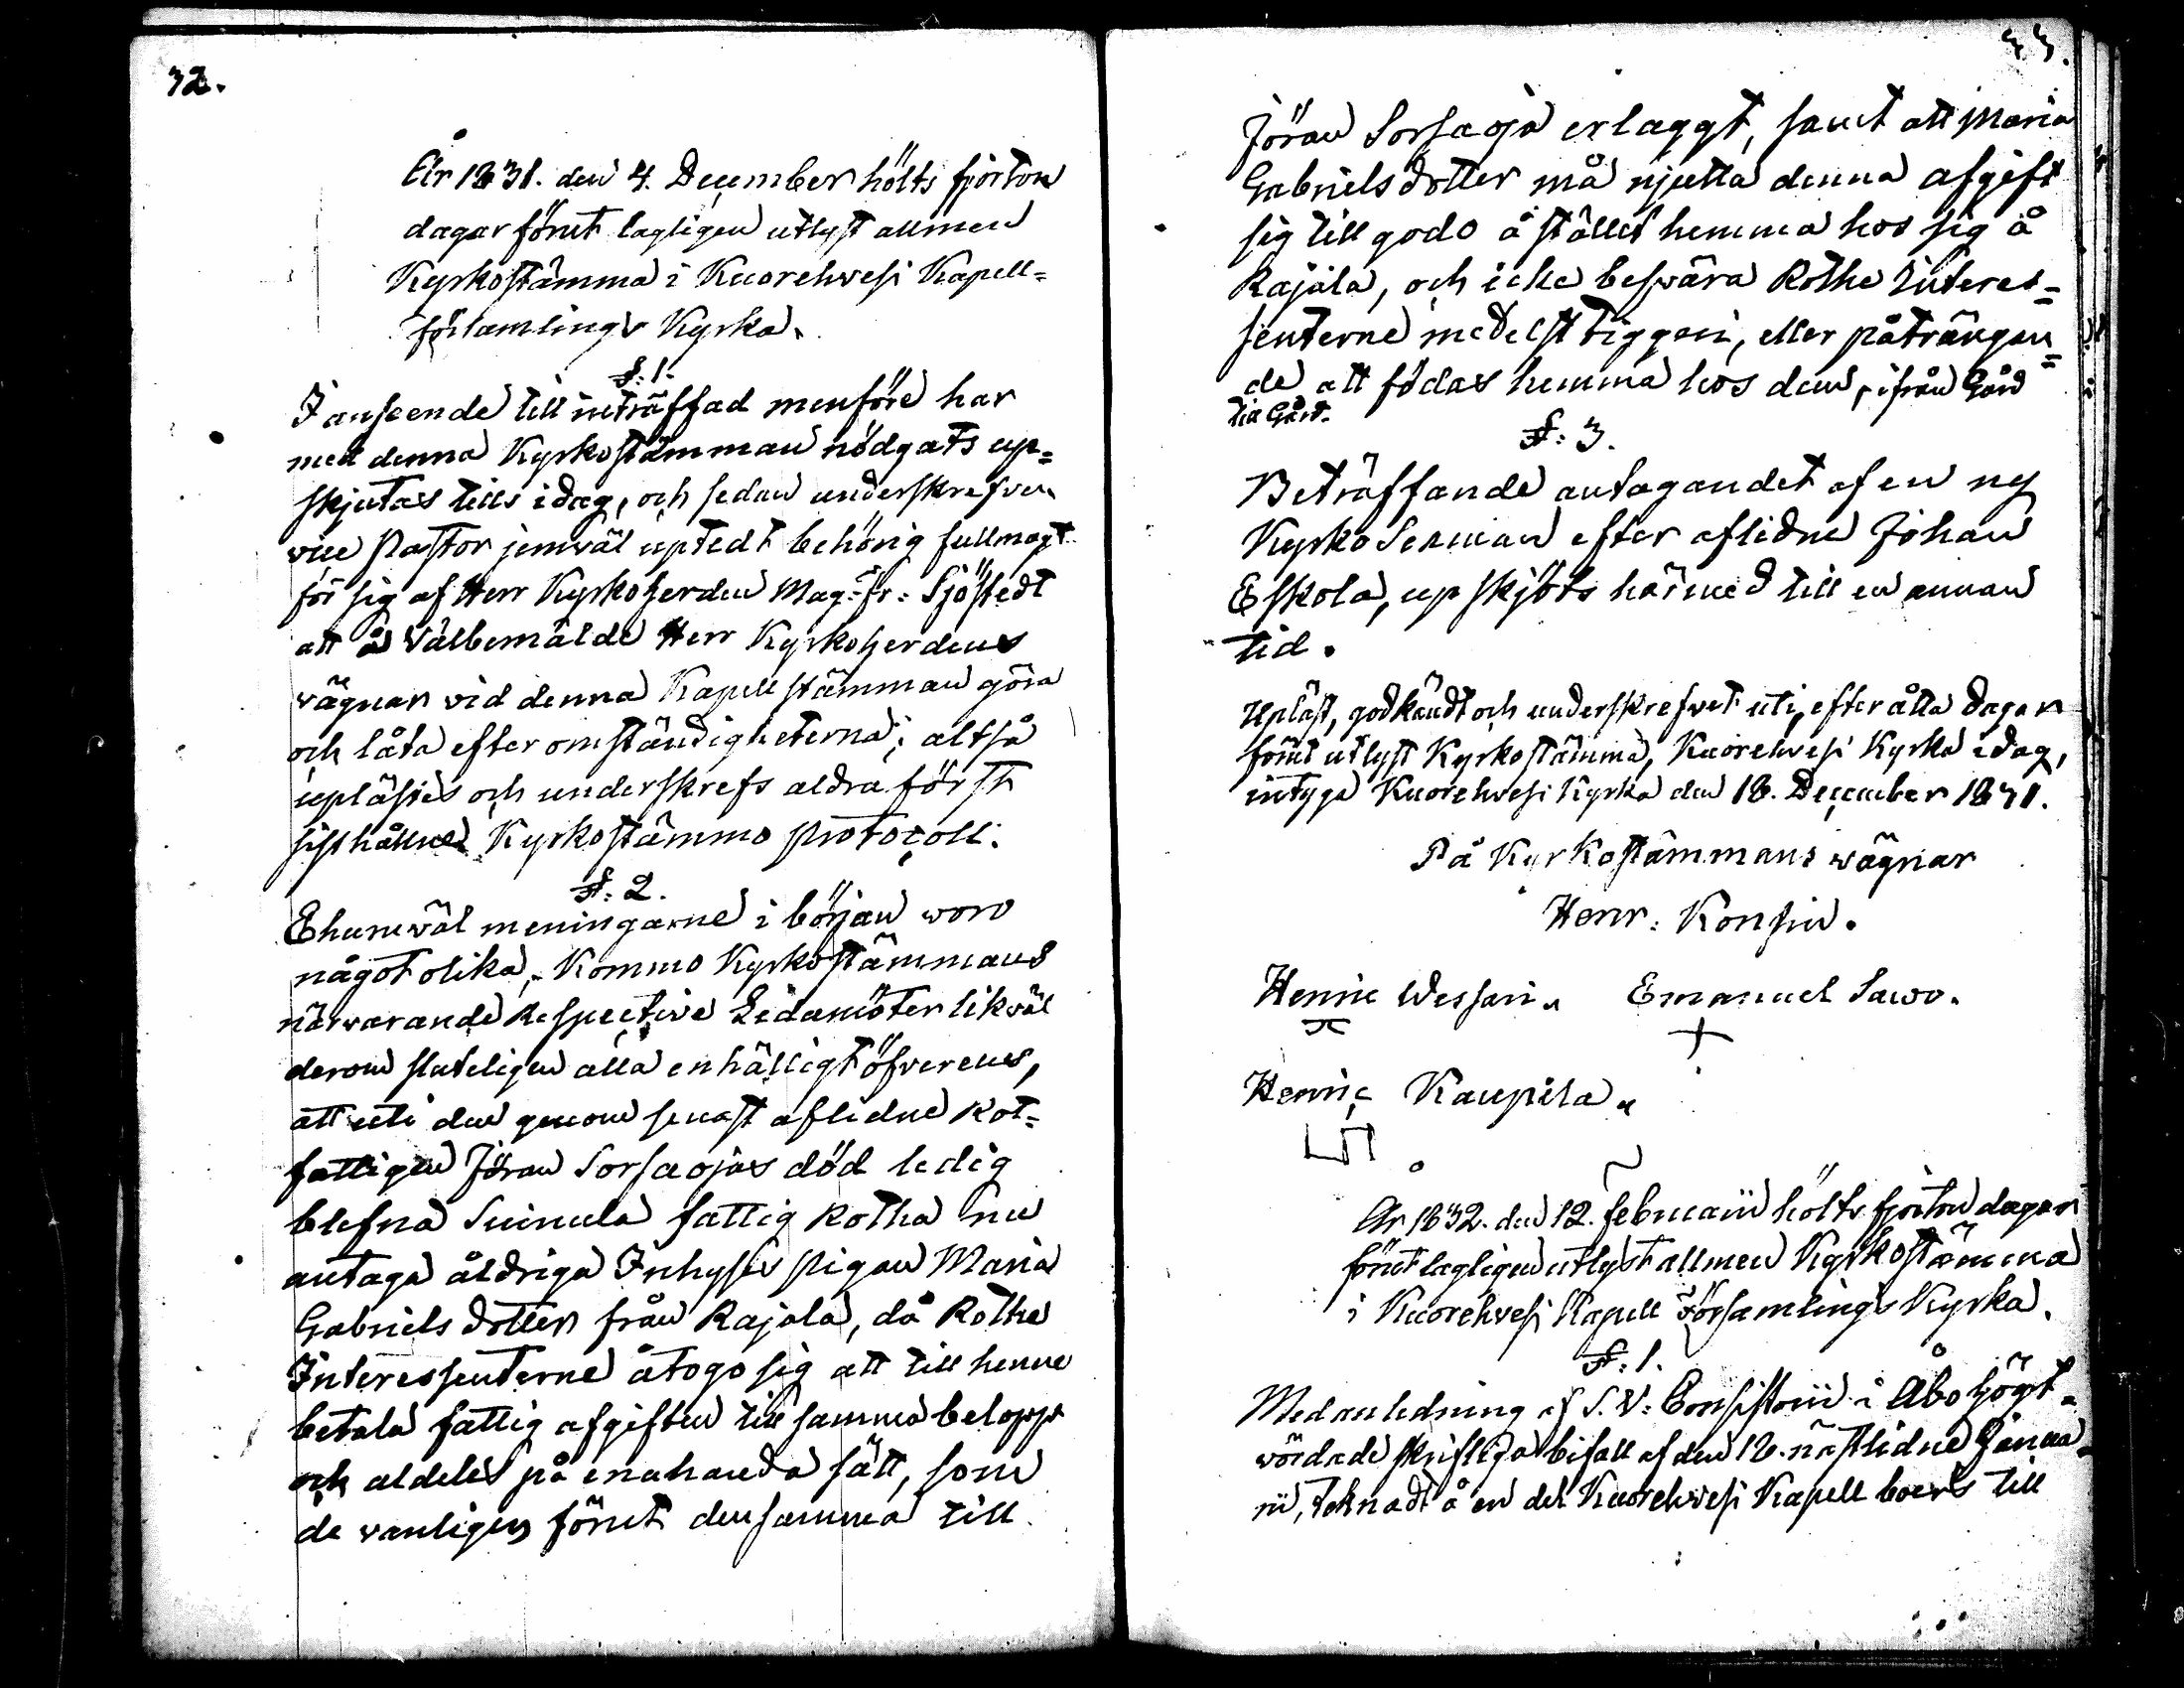 32.
År 1831. den 4. December hölts fjorton
dagar förut lagligen utlyst allmen
Kyrkostämma i Kuorehvesi Kapell=
församlings Kyrka.
§: 1.
I anseende till inträffad menföre har
med denna Kyrkostämman nödgats up=
skjutas tills idag, och sedan underskrefven
vice Pastor jemväl uptedt behörig fullmagt
för sig af Herr Kyrkoherden Mag: Fr: Sjöstedt
att å Välbemälde Herr Kyrkoherdens
vägnar vid denna Kapellstämman göra
och låta efter omständigheterna; altså
uplästes och underskrefs aldraförst
sisthållne Kyrkostämmo Protocoll.
§: 2.
Ehuruväl meningarne i början woro
något olika, kommo Kyrkostämmans
närvarande Respective Ledamöter likväl
derom sluteligen alla enhälligt öfverens,
att uti den genom senast aflidne Rot=
fattigen Jöran Sorsaojas död ledig
blefna Suinula fattig Rotha nu
antaga åldriga Inhyses Pigan Maria
Gabriels dotter från Rajala, då Rothe
Interessenterne åtogo sig att till henne
betala fattig afgiften till samma belopp
och aldeles på enahanda sätt, som
de vanligen förut densamma till
33.
Jöran Sorsaoja erlaggt, samt att Maria
Gabriels dotter må njutta denna afgift
sig till godo å stället hemma hos sig å
Rajala, och icke besvära Rothe Interes=
senterne medelst tiggeri, eller påträngan=
de att födas hemma hos dem, ifrån Gård
till Gård.
§: 3.
Beträffande antagandet af en ny
Kyrko Sexman efter aflidne Johan
Eskola, upskjöts härmed till en annan
tid.
Upläst, godkändt och underskrefvet uti, efter åtta dagar
förut utlyst Kyrkostämma, Kuorehvesi Kyrka idag,
intyga Kuorehvesi Kyrka den 18. December 1831.
På Kyrkostämmans vägnar
Henr: Konsin.
Henric Wessari. Emanuel Sawo.
Henric Kaupila.
År 1832. den 12. Februarii hölts fjorton dagar
förut lagligen utlyst allmen Kyrkostämma
i Kuorehvesi Kapell Församlings Kyrka.
§: 1.
Med anledning af S. V: Consistorii i Åbo högt=
vördade skriftliga bifall af den 18. nästlidne Janua=
rii, teknadt å en del Kuorehvesi Kapell boers till